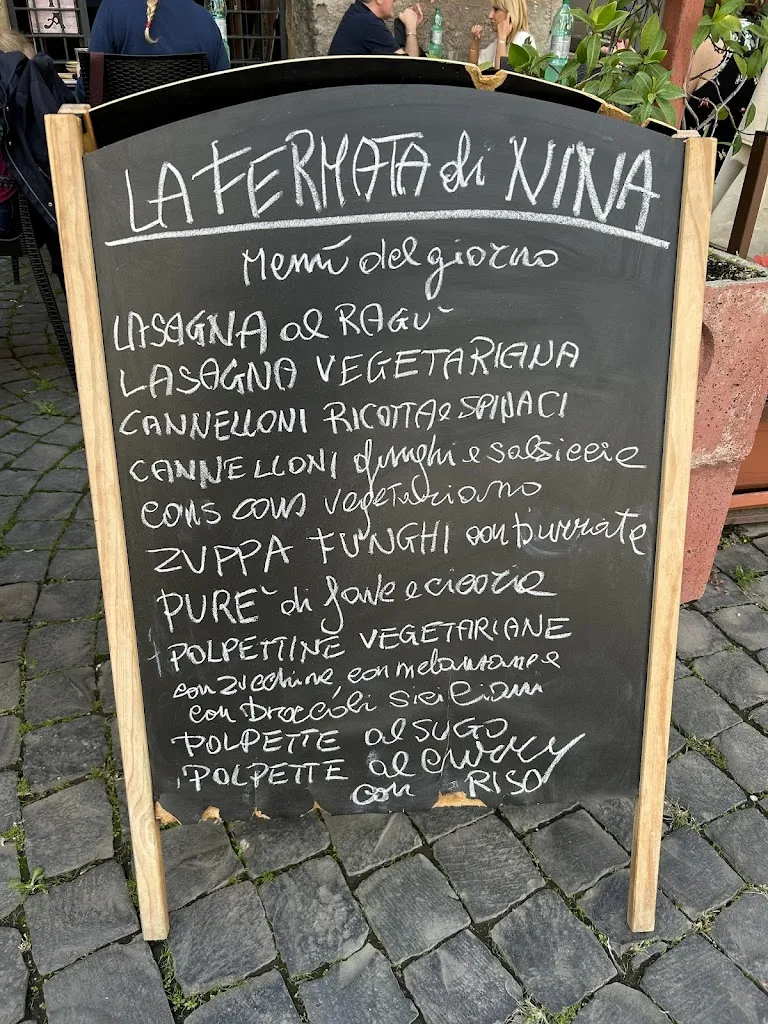 LA FERMATA di NINA
Menù del giorno
LASAGNA al RAGU`
LASAGNA VEGETARIANA
CANNELLONI RICOTTA e SPINACI
CANNELLONI funghi e salsiccia
cous cous vegetariano
ZUPPA FUNGHI con burrata
PURE` di fave e cicoria
POLPETTINE VEGETARIANE
con zucchine, con melanzane e
con broccoli siciliani
POLPETTE al SUGO
POLPETTE al curry
con RISO